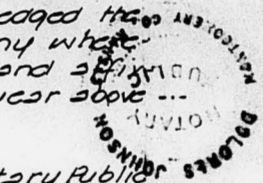 edged the
ny where-
and affix
year above ---
tary Public
DOLORES JOHNSON
NOTARY
PUBLIC
MONTGOMERY CO